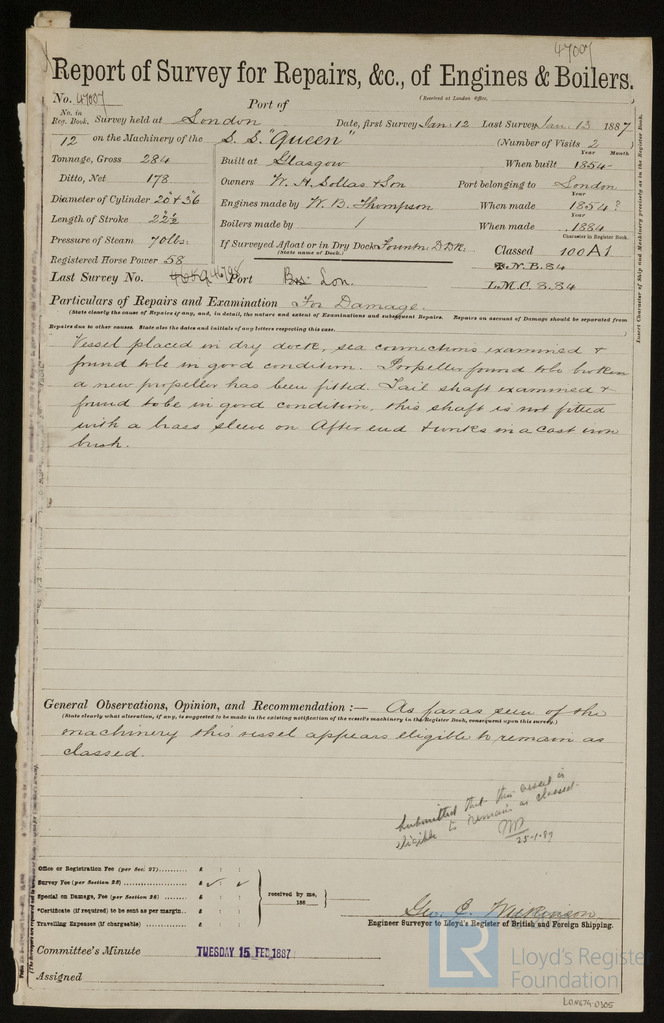 47007
Report of Survey for Repairs, &c., of Engines & Boilers.
(Received at London Office.
No. 47007 Port of
No. in Reg. Book. Survey held at London Date, first Survey Jan: 12 Last Survey Jan: 13 1887
12 on the Machinery of the S. S. "Queen" (Number of Visits 2
Tonnage, Gross 284 Built at Glasgow When built 1854
Year Month
Ditto, Net 178 Owners W. H. Sollas & Son Port belonging to London
Diameter of Cylinder 20" & 36 Engines made by W. B. Thompson When made 1854?
Year
Length of Stroke 22½ Boilers made by When made 1884
Year
Pressure of Steam 70 lbs: If Surveyed Afloat or in Dry Dock
(State name of Dock.)
Character in Register Book.
Classed 100A1
Registered Horse Power 58 N.B. 84
Last Survey No. Port Lon. L.M.C. 3.84
Particulars of Repairs and Examination For Damage.
(State clearly the cause of Repairs if any, and, in detail, the nature and extent of Examinations and subsequent Repairs. Repairs on account of Damage should be separated from
Repairs due to other causes. State also the dates and initials of any letters respecting this case.
Vessel placed in dry dock, sea connections examined &
found to be in good condition. Propeller found to be broken
a new propeller has been fitted. Tail shaft examined &
found to be in good condition, this shaft is not fitted
with a brass sleeve on After end & works in a cast iron
bush.
General Observations, Opinion, and Recommendation :— As far as seen of the
(State clearly what alteration, if any, is suggested to be made in the existing notification of the vessel's machinery in the Register Book, consequent upon this survey.)
machinery this vessel appears eligible to remain as
classed.
Submitted that this vessel is
eligible to remain as classed.
Office or Registration Fee (per Sec. 27)
Survey Fee (per Section 28)
Special on Damage, Fee (per Section 28)
*Certificate (if required) to be sent as per margin
Travelling Expenses (if chargeable)
received by me,
188
Geo. C. Wilkinson
Engineer Surveyor to Lloyd's Register of British and Foreign Shipping.
Committee's Minute TUESDAY 15 FEB 1887
Assigned
Insert Character of Ship and Machinery precisely as in the Register Book.
LR Lloyd's Register
Foundation
LON674-0305